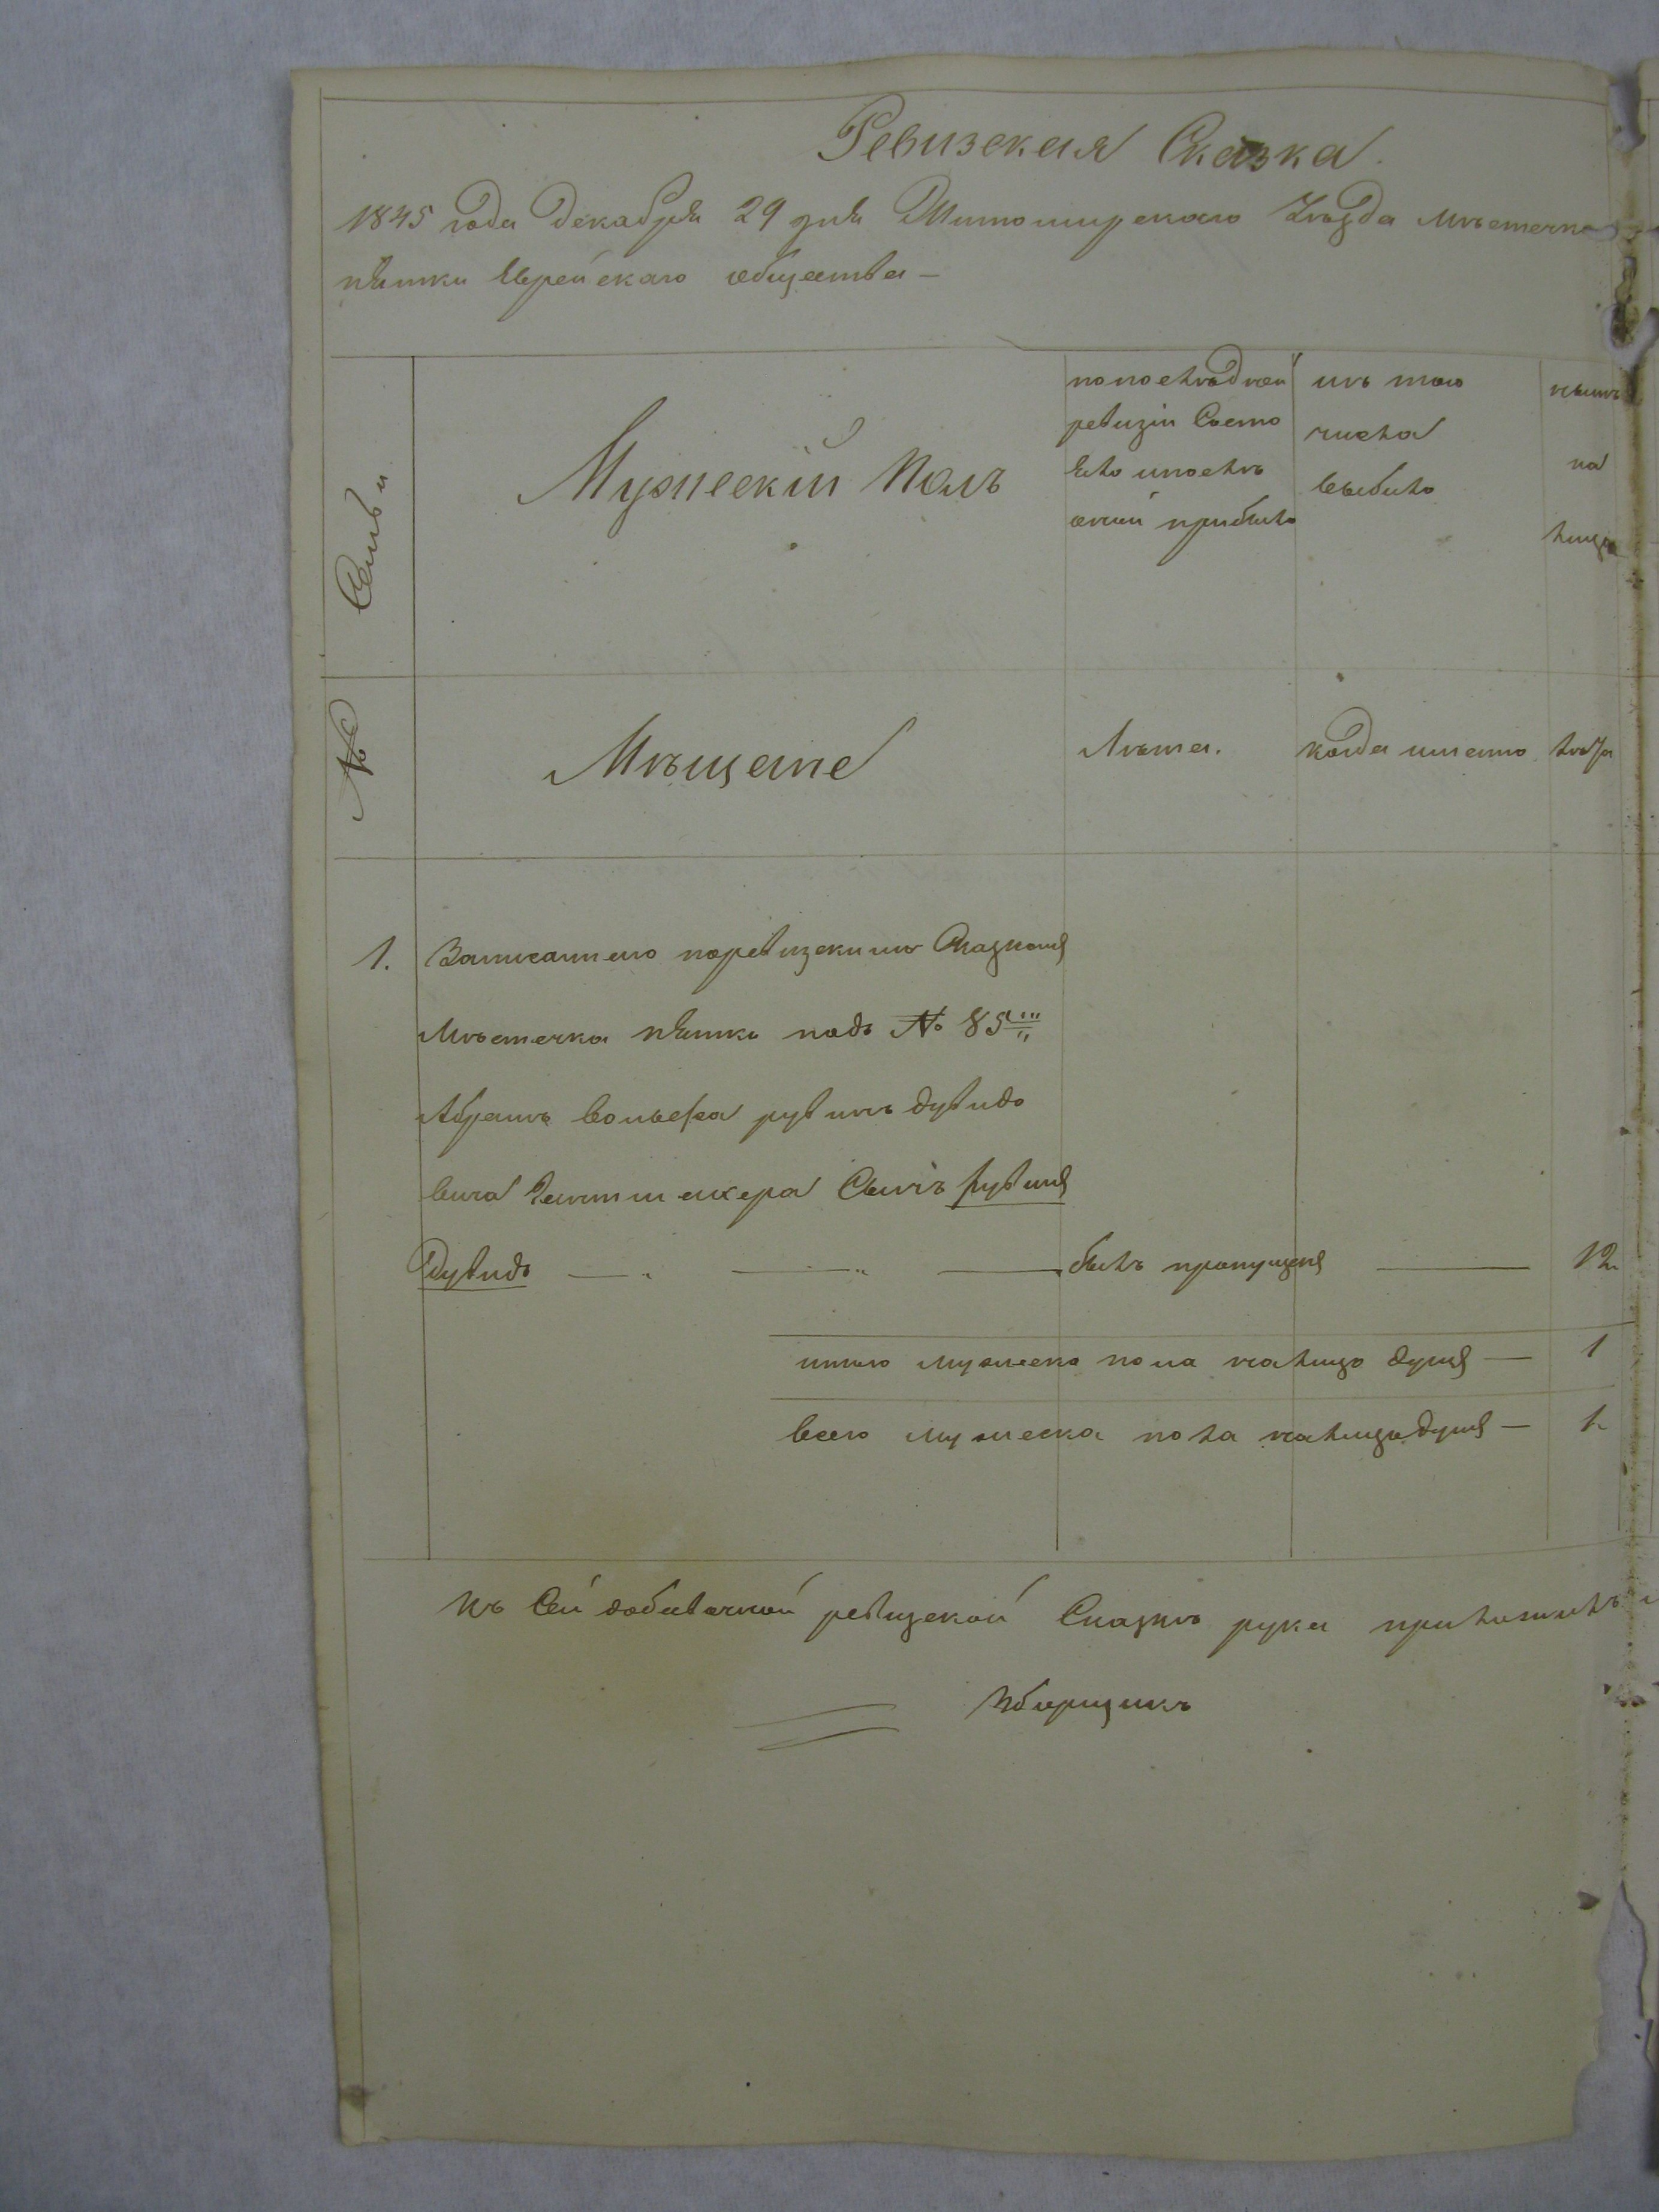 Ревизская Сказка.
1845 года Декабря 29 дня Житомирскаго Уѣзда мѣстечка
пятки Еврейскаго общества —
№ Семьи
Мужескій Полъ
по послѣдней
ревизіи Состо
яло и послѣ
оной прибыло
изъ того
числа
выбыло
нынѣ
на
лицо
Мѣщане
Лѣта.
когда именно
лѣта
1. Записаннаго по ревизскимъ Сказкамъ
мѣстечка пятки подъ № 85
Абрамъ вольфа рувинъ дувидо
вича Сынъ рувинъ
Дувидъ — былъ пропущенъ — 12
итого мужеска пола налицо душъ — 1
всего мужеска пола налицо душъ — 1
Къ Сей добавочной ревизской Сказкѣ руку приложилъ
Зборщикъ